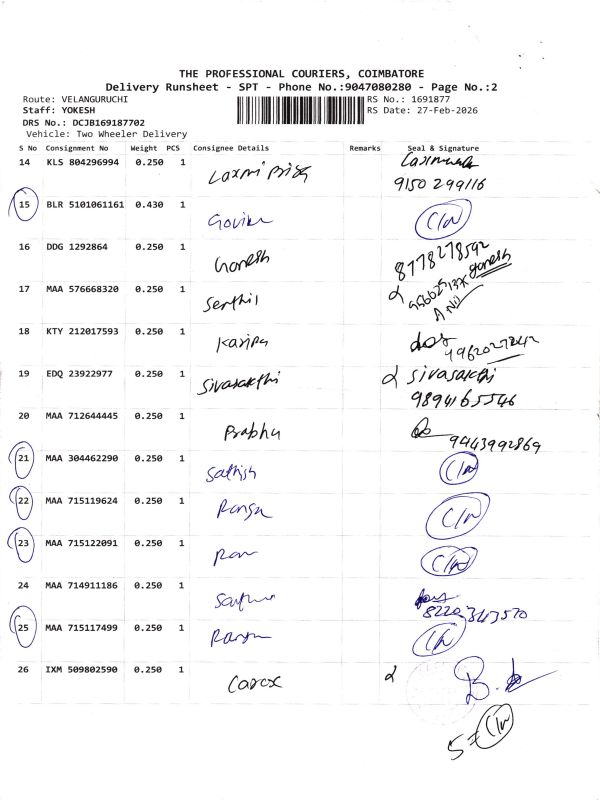 THE PROFESSIONAL COURIERS, COIMBATORE
Delivery Runsheet - SPT - Phone No.:9047080280 - Page No.:2
Route: VELANGURUCHI
Staff: YOKESH
DRS No.: DCJB169187702
Vehicle: Two Wheeler Delivery
RS No.: 1691877
RS Date: 27-Feb-2026
S No Consignment No Weight PCS Consignee Details Remarks Seal & Signature
14 KLS 804296994 0.250 1 Laxmi Priya
9150 299116
15 BLR 5101061161 0.430 1
16 DDG 1292864 0.250 1 Ganesh 8778278592 ganesh
17 MAA 576668320 0.250 1 Senthil
Anil
18 KTY 212017593 0.250 1
19 EDQ 23922977 0.250 1 Sivasakthi Sivasakthi
9894165546
20 MAA 712644445 0.250 1 Prabhu 9443992869
21 MAA 304462290 0.250 1 Sathish
22 MAA 715119624 0.250 1
23 MAA 715122091 0.250 1
24 MAA 714911186 0.250 1
8220343570
25 MAA 715117499 0.250 1
26 IXM 509802590 0.250 1